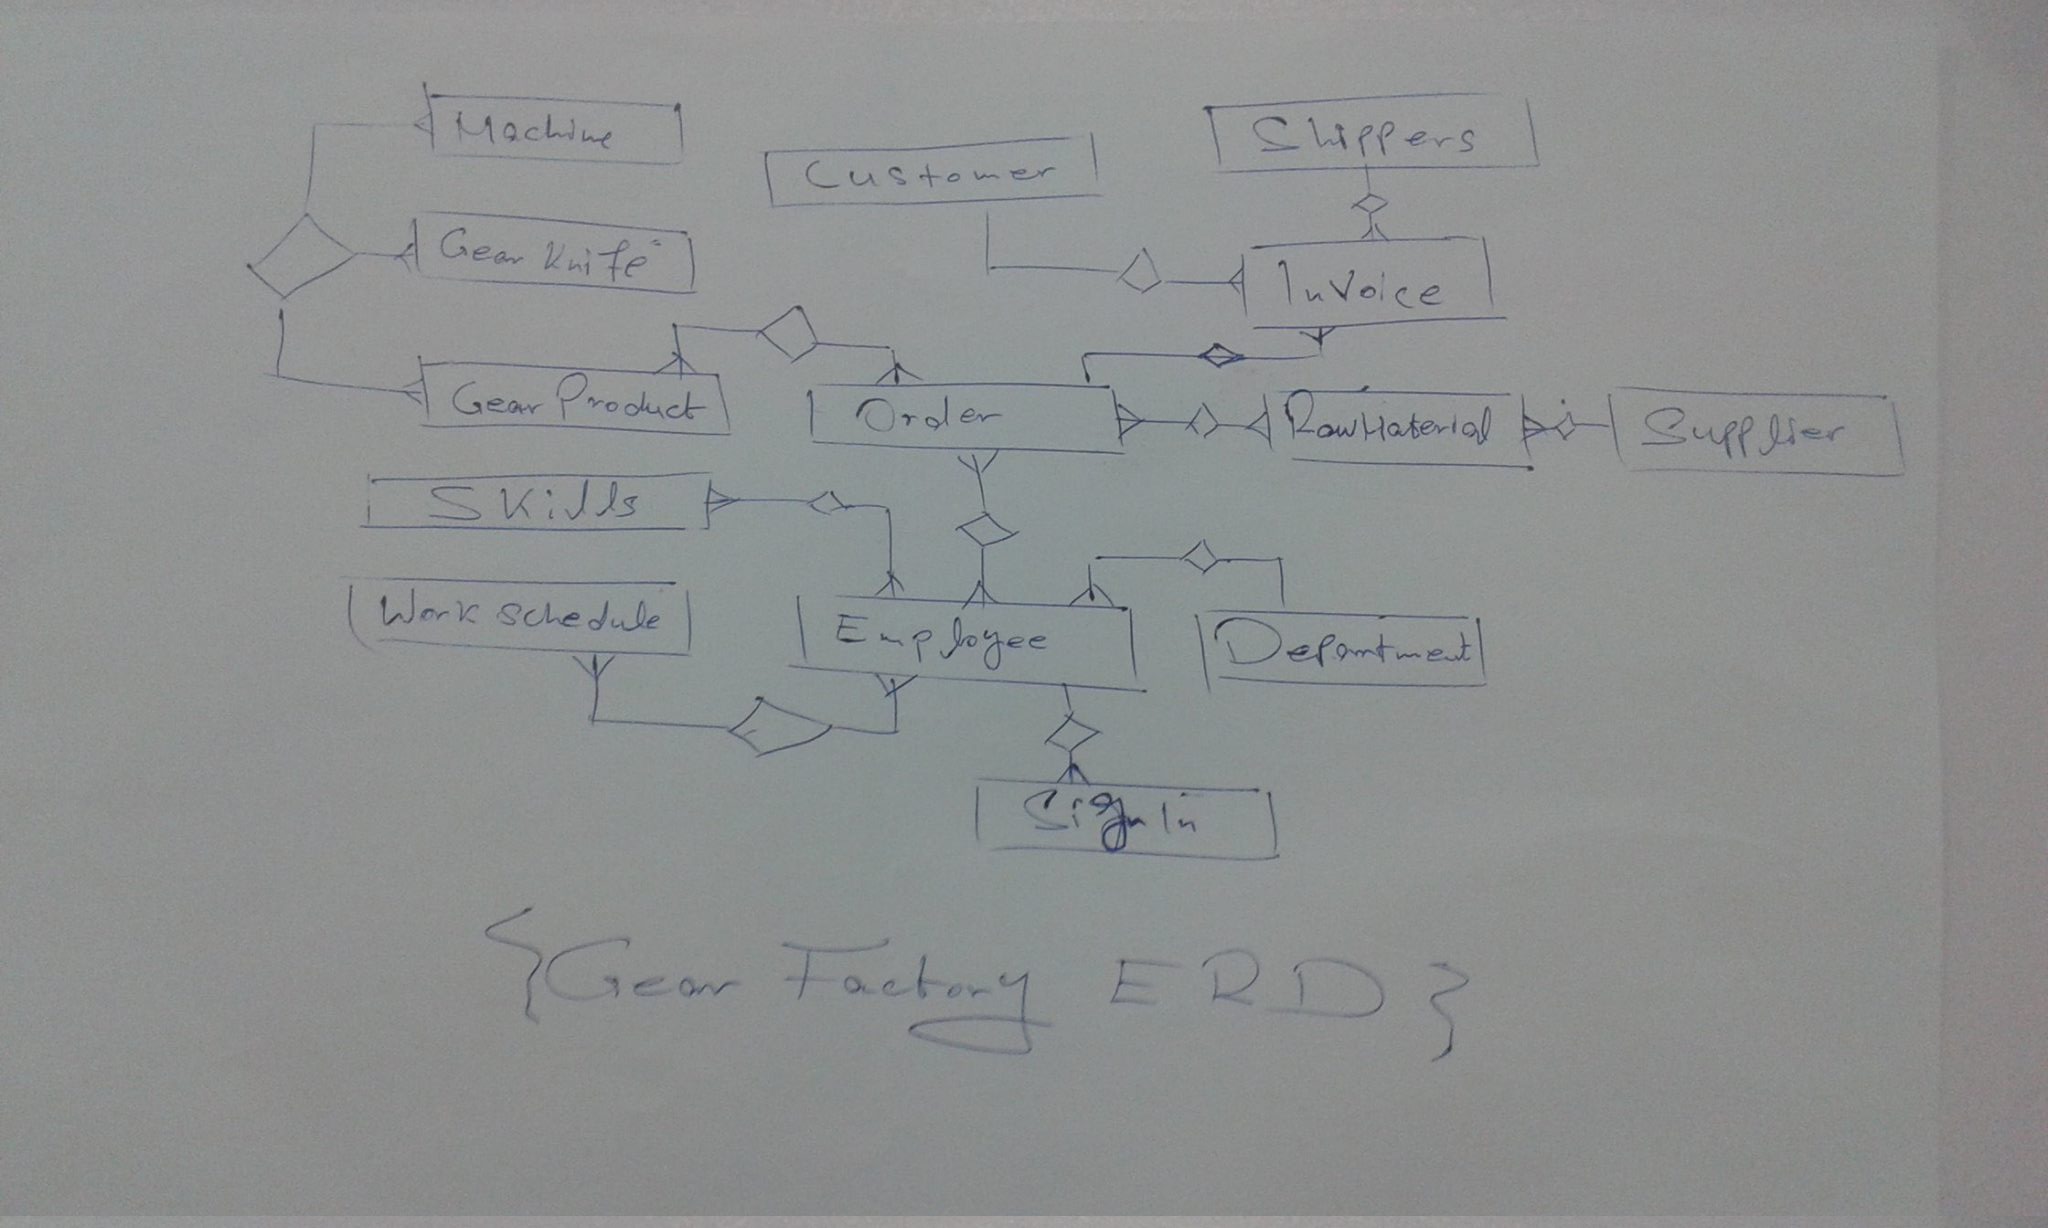 Machine
Customer
Shippers
Gear Knife
Invoice
Gear Product
Order
RawMaterial
Supplier
Skills
Work schedule
Employee
Department
Sign In
{Gear Factory ERD}